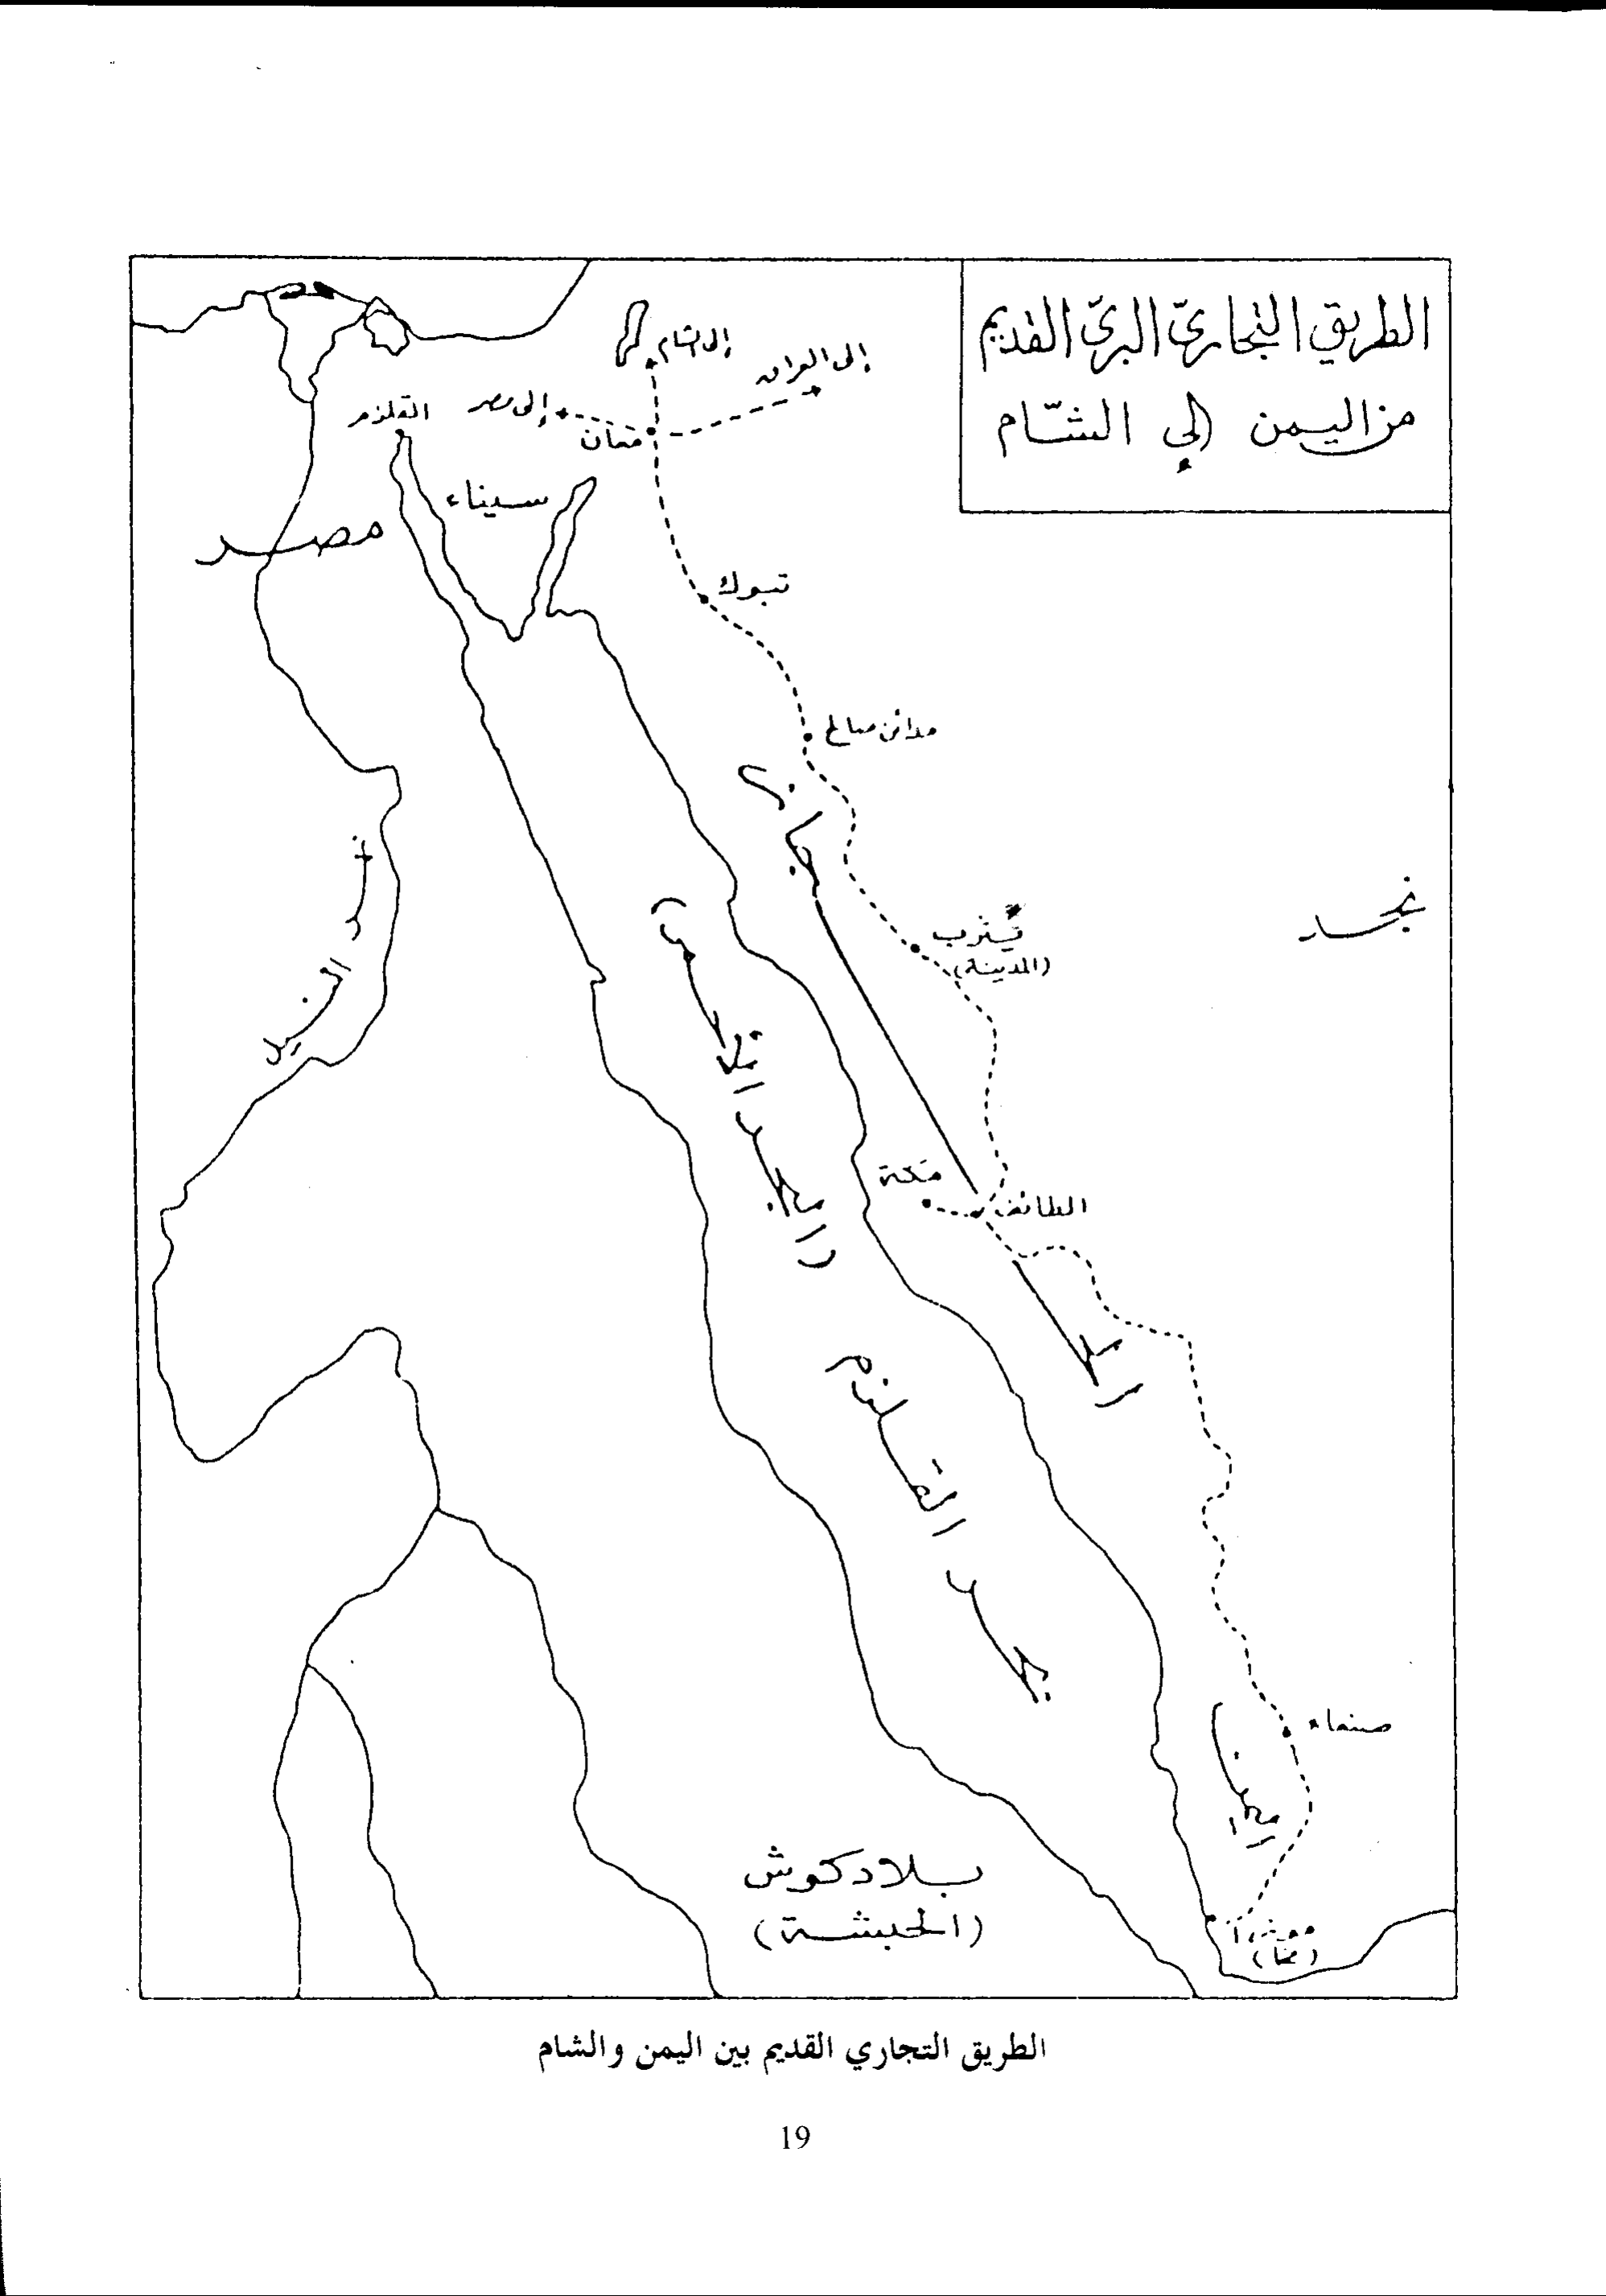 الطريق التجاريّ البريّ القديم
من اليمن إلى الشّام
إلى الشام
إلى العراق
إلى مصر
معان
القلزم
سيناء
مصر
تبوك
مدائن صالح
نهر النيل
الحجاز
يثرب
(المدينة)
نجد
مكة
الطائف
بحر القلزم
(البحر الأحمر)
صنعاء
اليمن
بلاد كوش
(الحبشة)
(مخا)
الطريق التجاري القديم بين اليمن والشام
19